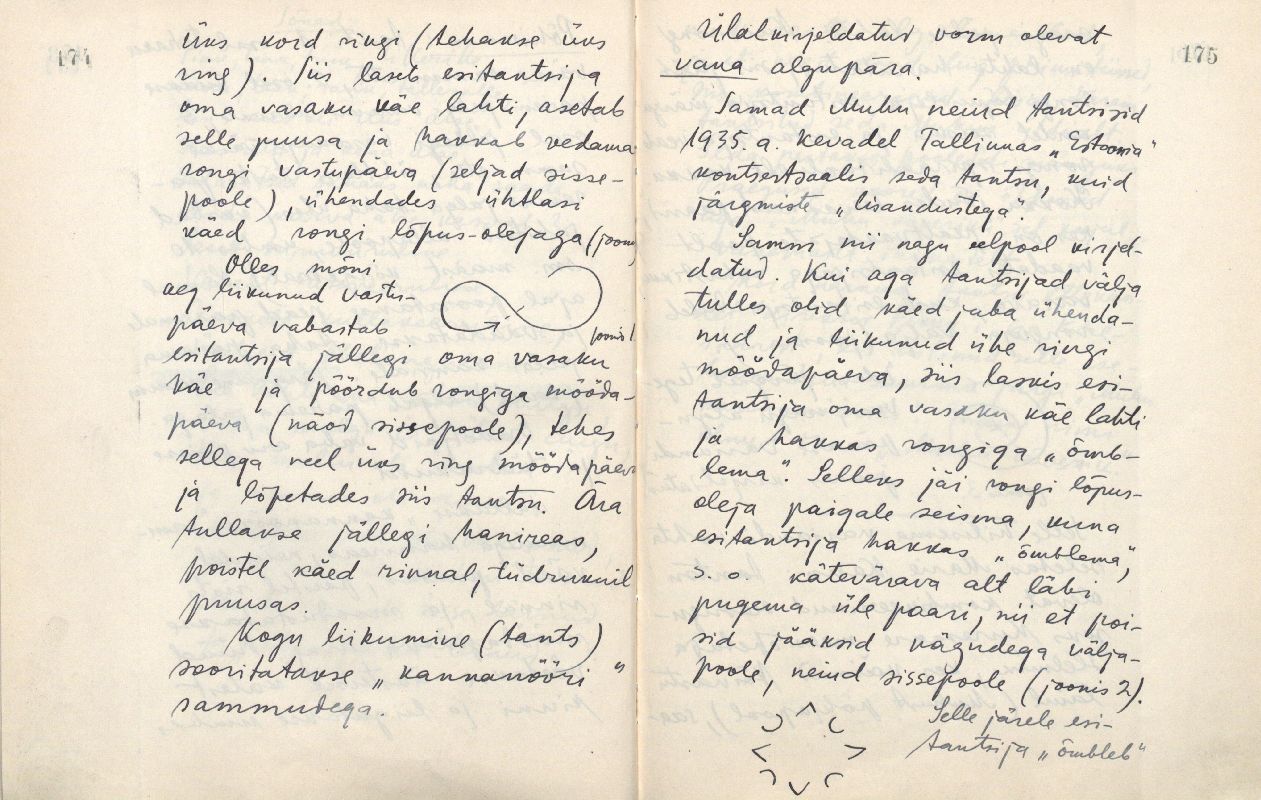 174
üks kord ringi (tehakse üks
ring). Siis laseb esitantsija
oma vasaku käe lahti, asetab
selle puusa ja hakkab vedama
rongi vastupäeva (seljad sisse-
poole), ühendades ühtlasi
käed rongi lõpus-olejaga (joonis
Olles mõni
aeg liikunud vastu-
päeva vabastab
joonis 1.
esitantsija jällegi oma vasaku
käe ja pöördub rongiga mööda-
päeva (näod sissepoole), tehes
sellega veel üks ring möödapäeva
ja lõpetades siis tantsu. Ära
tullakse jällegi hanireas,
poistel käed rinnal, tüdrukuil
puusas.
Kogu liikumine (tants)
sooritatakse „kannanööri"
sammudega.
175
Ülalkirjeldatud vorm olevat
vana algupära.
Samad Muhu neiud tantsisid
1935. a. kevadel Tallinnas „Estonia"
kontsertsaalis seda tantsu, kuid
järgmiste „lisandustega".
Samm nii nagu eelpool kirjel-
datud. Kui aga tantsijad välja
tulles olid käed juba ühenda-
nud ja liikunud ühe ringi
möödapäeva, siis laskis esi-
tantsija oma vasaku käe lahti
ja hakkas rongiga „õmb-
lema". Selleks jäi rongi lõpus-
oleja paigale seisma, kuna
esitantsija hakkas „õmblema",
s. o. kätevärava alt läbi
pugema üle paari, nii et poi-
sid jääksid nägudega välja-
poole, neiud sissepoole (joonis 2).
Selle järele esi-
tantsija „õmbleb"